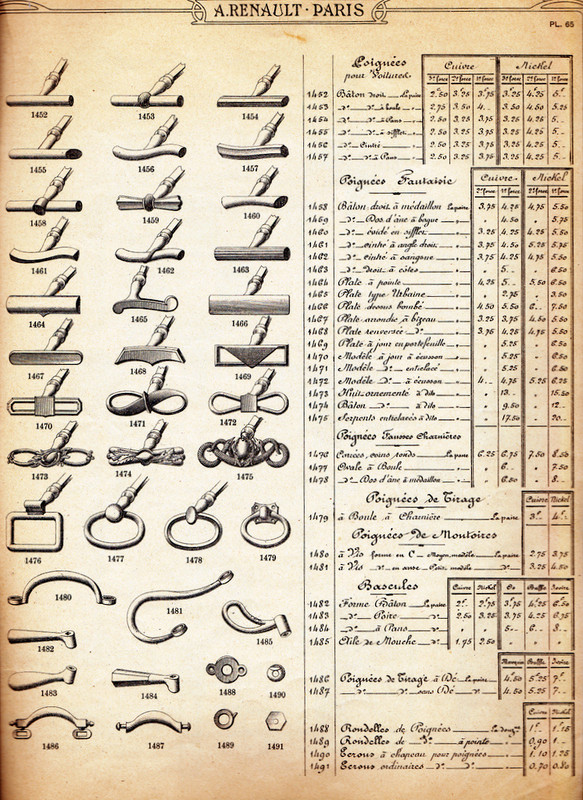 A. RENAULT · PARIS
PL. 65
1452
1453
1454
1455
1456
1457
1458
1459
1460
1461
1462
1463
1464
1465
1466
1467
1468
1469
1470
1471
1472
1473
1474
1475
1476
1477
1478
1479
1480
1481
1485
1482
1483
1484
1488
1490
1486
1487
1489
1491
Poignées pour Voitures
Cuivre Nickel
3e force 2e force 1e force 3e force 2e force 1e force
1452 Bâton droit La paire 2.50 3.25 3.75 3.25 4.25 5.
1453 do à boule do 2.75 3.50 4. 3.50 4.50 5.25
1454 do à Pans do 2.50 3.25 3.75 3.25 4.25 5.
1455 do à sifflet do 2.50 3.25 3.75 3.25 4.25 5.
1456 do Cintré do 2.50 3.25 3.75 3.25 4.25 5.
1457 do do à Pans do 2.50 3.25 3.75 3.25 4.25 5.
Poignées Fantaisie
Cuivre Nickel
2e force 1e force 2e force 1e force
1458 Bâton droit à médaillon La paire 3.75 4.25 4.75 5.50
1459 do Dos d'âne à bague 4.50 5.75
1460 do évidé en sifflet 3.25 4.25 4.25 5.50
1461 do cintré à angle droit 3.75 4.50 5.25 5.75
1462 do cintré à 3.75 4.25 4.75 5.50
1463 do droit à côtes 5. 6.50
1464 Plate à pointe 4.25 5. 5.50 6.50
1465 Plate type Urbaine 2.75 3.50
1466 Plate dessus bombé 4.50 5.50 6. 7.50
1467 Plate arrondie à bizeau 3.25 3.75 4.50 5.50
1468 Plate renversée do 3.75 4.25 4.75 5.50
1469 Plate à jour en portefeuille 5. 6.50
1470 Modèle à jour à écusson 5.25 6.50
1471 Modèle do entrelacé 5.25 6.50
1472 Modèle do à écusson 4. 4.75 5.25 6.25
1473 Huit ornementé à do 13. 15.50
1474 Bâton do à do 9.50 12.
1475 Serpents entrelacés à do 17.50 20.
Poignées Fausses Charnières
1476 Carrées, coins ronds La paire 6.25 6.75 7.50 8.50
1477 Ovale à Boule 6. 7.50
1478 do Dos d'âne à médaillon 6.50 8.
Poignées de Tirage
Cuivre Nickel
1479 à Boule à Charnière La paire 3. 4.
Poignées de Montoires
1480 à Vis forme en C Moyen modèle La paire 2.75 3.75
1481 à Vis do en anse Petit modèle do 3.25 4.50
Bascules
Cuivre Nickel Os Buffle Ivoire
1482 Forme Bâton La paire 2. 2.75 3.75 4.25 6.50
1483 do Poire do 2.50 3.25 3.75 4.25 7.
1484 do à Pans do 5. 6. 8.
1485 Aile de Mouche do 1.75 2.50
Buffle Ivoire
1486 Poignées de Tirage à Dé La paire 4.50 5.25 7.
1487 do do sans Dé do 4.50 5.25 7.
Cuivre Nickel
1488 Rondelles de Poignées La douz. 1. 1.15
1489 Rondelles de do à pointe 0.90 1.
1490 Ecrous à chapeau pour poignées 1.10 1.25
1491 Ecrous ordinaires do do 0.70 0.80